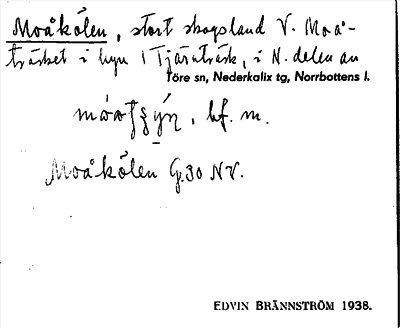 Moåkölen, stort skogsland V. Moå-
träsket i byn Tjärnträsk, i N. delen av
Töre sn, Nederkalix tg, Norrbottens l.
bf. m.
Moåkölen G.30 NV.
EDVIN BRÄNNSTRÖM 1938.